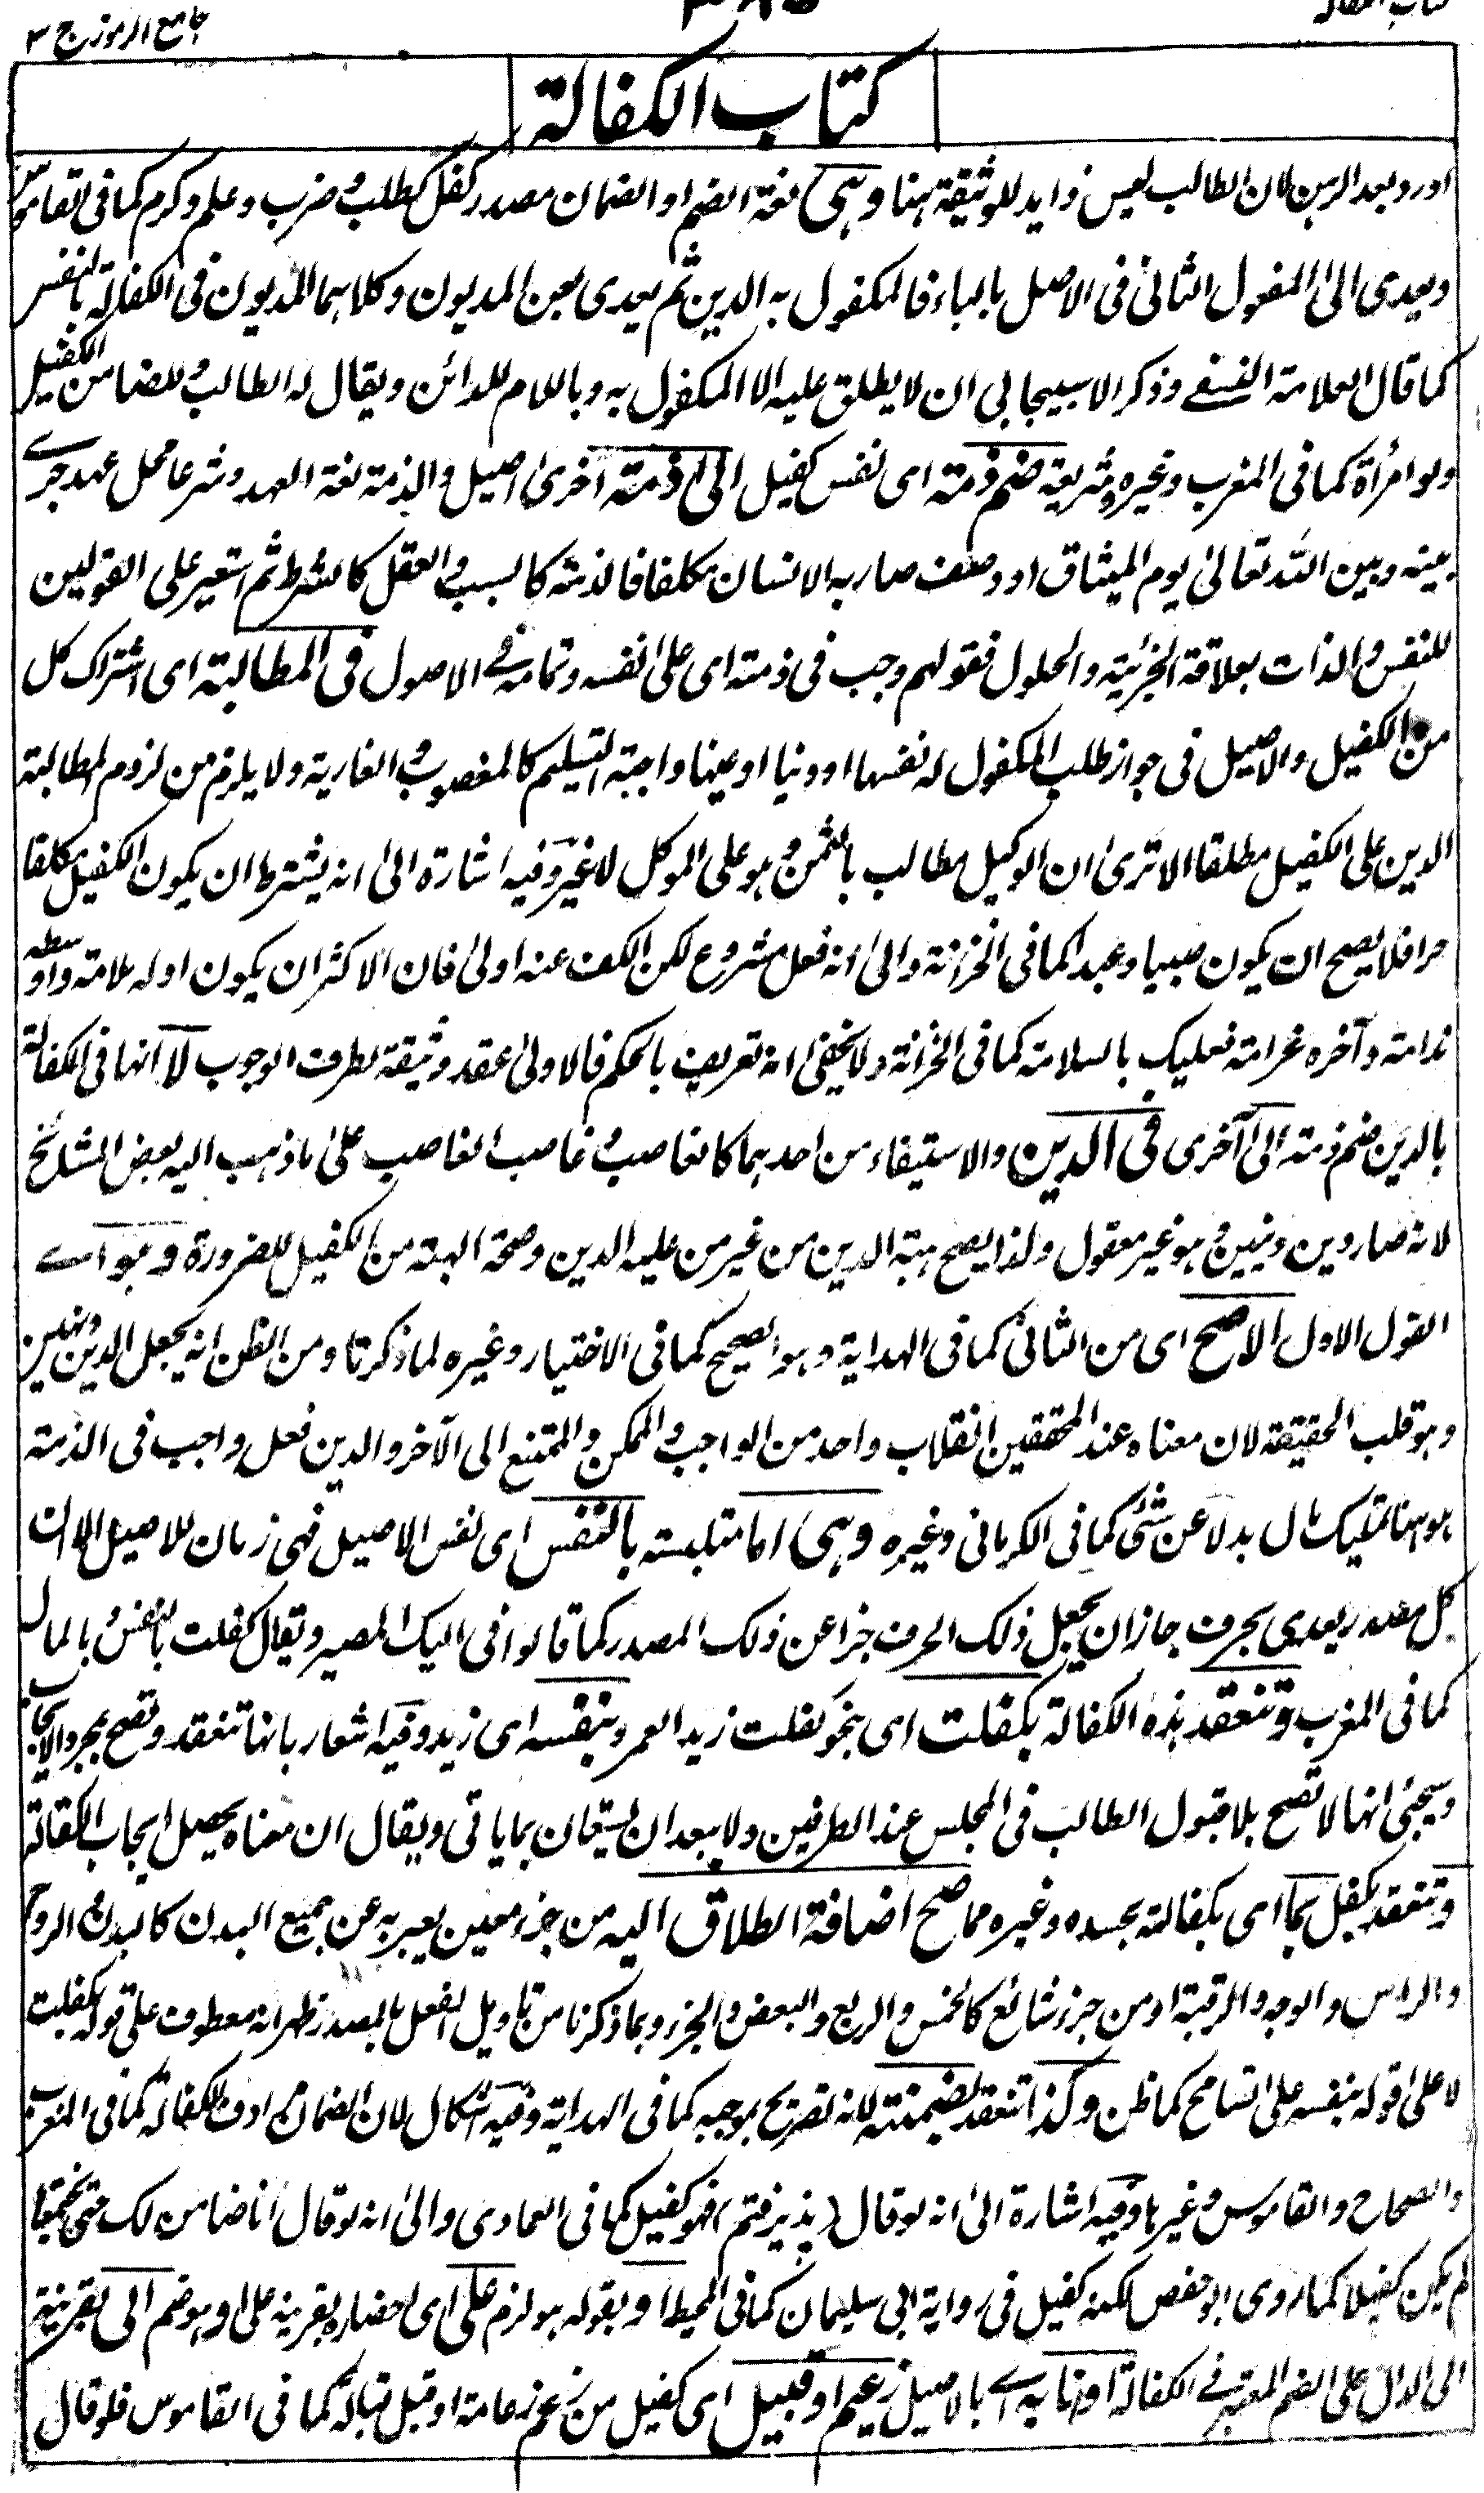 جامع الرموز ج ٣
كتاب الكفالة
اورد بعد الرهن لان الطالب ليس زوايد للوثيقة هنا وهى لغة الضم او الضمان مصدر كفل كطلب وضرب وعلم وكرم كما فى القاموس
ويعدى الى المفعول الثانى فى الاصل بالباء فالمكفول به الدين ثم يعدى بعن المديون وكلاهما المديون فى الكفالة بالنفس
كما قال العلامة النسفے وذكر الاسبيجابى ان لا يطلق عليه الا المكفول به وباللام للدائن ويقال له الطالب وللضامن الكفيل
ولو امرأة كما فى المغرب وغيره وشريعة ضم ذمته اى نفس كفيل الى ذمته اخرى اصيل والذمة لغة العهد وشرعا محل عهد جرے
بينه وبين الله تعالى يوم الميثاق او وصف صار به الانسان مكلفا فالذمة كالسبب والعقل كالشرط ثم استعير على القولين
للنفس والذات بعلاقة الجزئية والحلول فقولهم وجب فى ذمته اى على نفسه وتمامه فے الاصول فى المطالبة اى اشتراك كل
من الكفيل والاصيل فى جواز طلب المكفول له نفسها او دينا او عينها واجبة التسليم كالمغصوب والعارية ولا يلزم من لزوم المطالبة
الدين على الكفيل مطلقا الا ترى ان الوكيل مطالب بالثمن وهو على الموكل لا غير وفيه اشارة الى انه يشترط ان يكون الكفيل مكلفا
حرا فلا يصح ان يكون صبيا وعبدا كما فى الخزانة والى انه فعل مشروع لكن الكف عنه اولى فان الاكثر ان يكون اوله ملامة واوسطه
ندامة وآخره غرامة فعليك بالسلامة كما فى الخزانة ولا يخفى انه تعريف بالحكم فالاولى عقد وثيقة لطرف الوجوب لا انها فى الكفالة
بالدين ضم ذمته الى آخرى فى الدين والاستيفاء من احدهما كالغاصب وغاصب الغاصب على ما ذهب اليه بعض المشائخ
لانه صار دين دينين وهو غير معقول ولذا يصح هبة الدين من غير من عليه الدين وصحة الهبة من الكفيل للضرورة وهو اے
القول الاول الاصح اى من الثانى كما فى الهداية وهو الصحيح كما فى الاختيار وغيره لما ذكرنا ومن الظن انه يجعل الدين دينين
وهو قلب الحقيقة لان معناه عند المحققين انقلاب واحد من الواجب والممكن والممتنع الى الآخر والدين فعل واجب فى الذمة
هو هنا تمليك مال بدلا عن شئ كما فى الكرمانى وغيره وهى اما متلبسة بالنفس اى نفس الاصيل فهى زمان للاصيل الا ان
كل مصدر يعدى بحرف جاز ان يجعل ذلك الحرف خبرا عن ذلك المصدر كما قالوا فى اليك المصير ويقال كفلت بالنفس وبالمال
كما فى المغرب وتنعقد هذه الكفالة بكفلت اى بنحو كفلت زيد العمرو بنفسه اى زيد وفيه اشعار بانها تنعقد وتصح بمجرد الايجاب
وسيجئ انها لا تصح بلا قبول الطالب فى المجلس عند الطرفين ولا يبعد ان يستعان بما ياتى ويقال ان معناه يحصل ايجاب الكفالة
وتنعقد بكفل بما اى بكفالته بجسده وغيره مما صح اضافة الطلاق اليه من جزء معين يعبر به عن جميع البدن كالبدن والروح
والراس والوجه والرقبة او من جزء شائع كالخمس والربع والبعض والجزء وبما ذكرنا من تاويل الفعل بالمصدر ظهر انه معطوف على قوله بكفلت
لا على قوله بنفسه على التسامح كما ظن وكذا تنعقد بضمنته لانه تصريح بموجبه كما فى الهداية وفيه اشكال لان الضمان مرادف للكفالة كما فى المغرب
والصحاح والقاموس وغيرها وفيه اشارة الى انه لو قال (پذيرفتم) فهو كفيل كما فى العمادى والى انه لو قال انا ضامن لك حتى نجيتها
لم يكن كفيلا كما روى ابو حفص لكنه كفيل فى رواية ابى سليمان كما فى المحيط او بقوله هو لزم على اى احضاره بقرينة على او هو ضم الى بقرينة
الى الدال على الضم المعتبر فے الكفالة او انا به اے بالاصيل زعيم او قبيل اى كفيل من زعم زعامة او قبل قبالة كما فى القاموس فلو قال